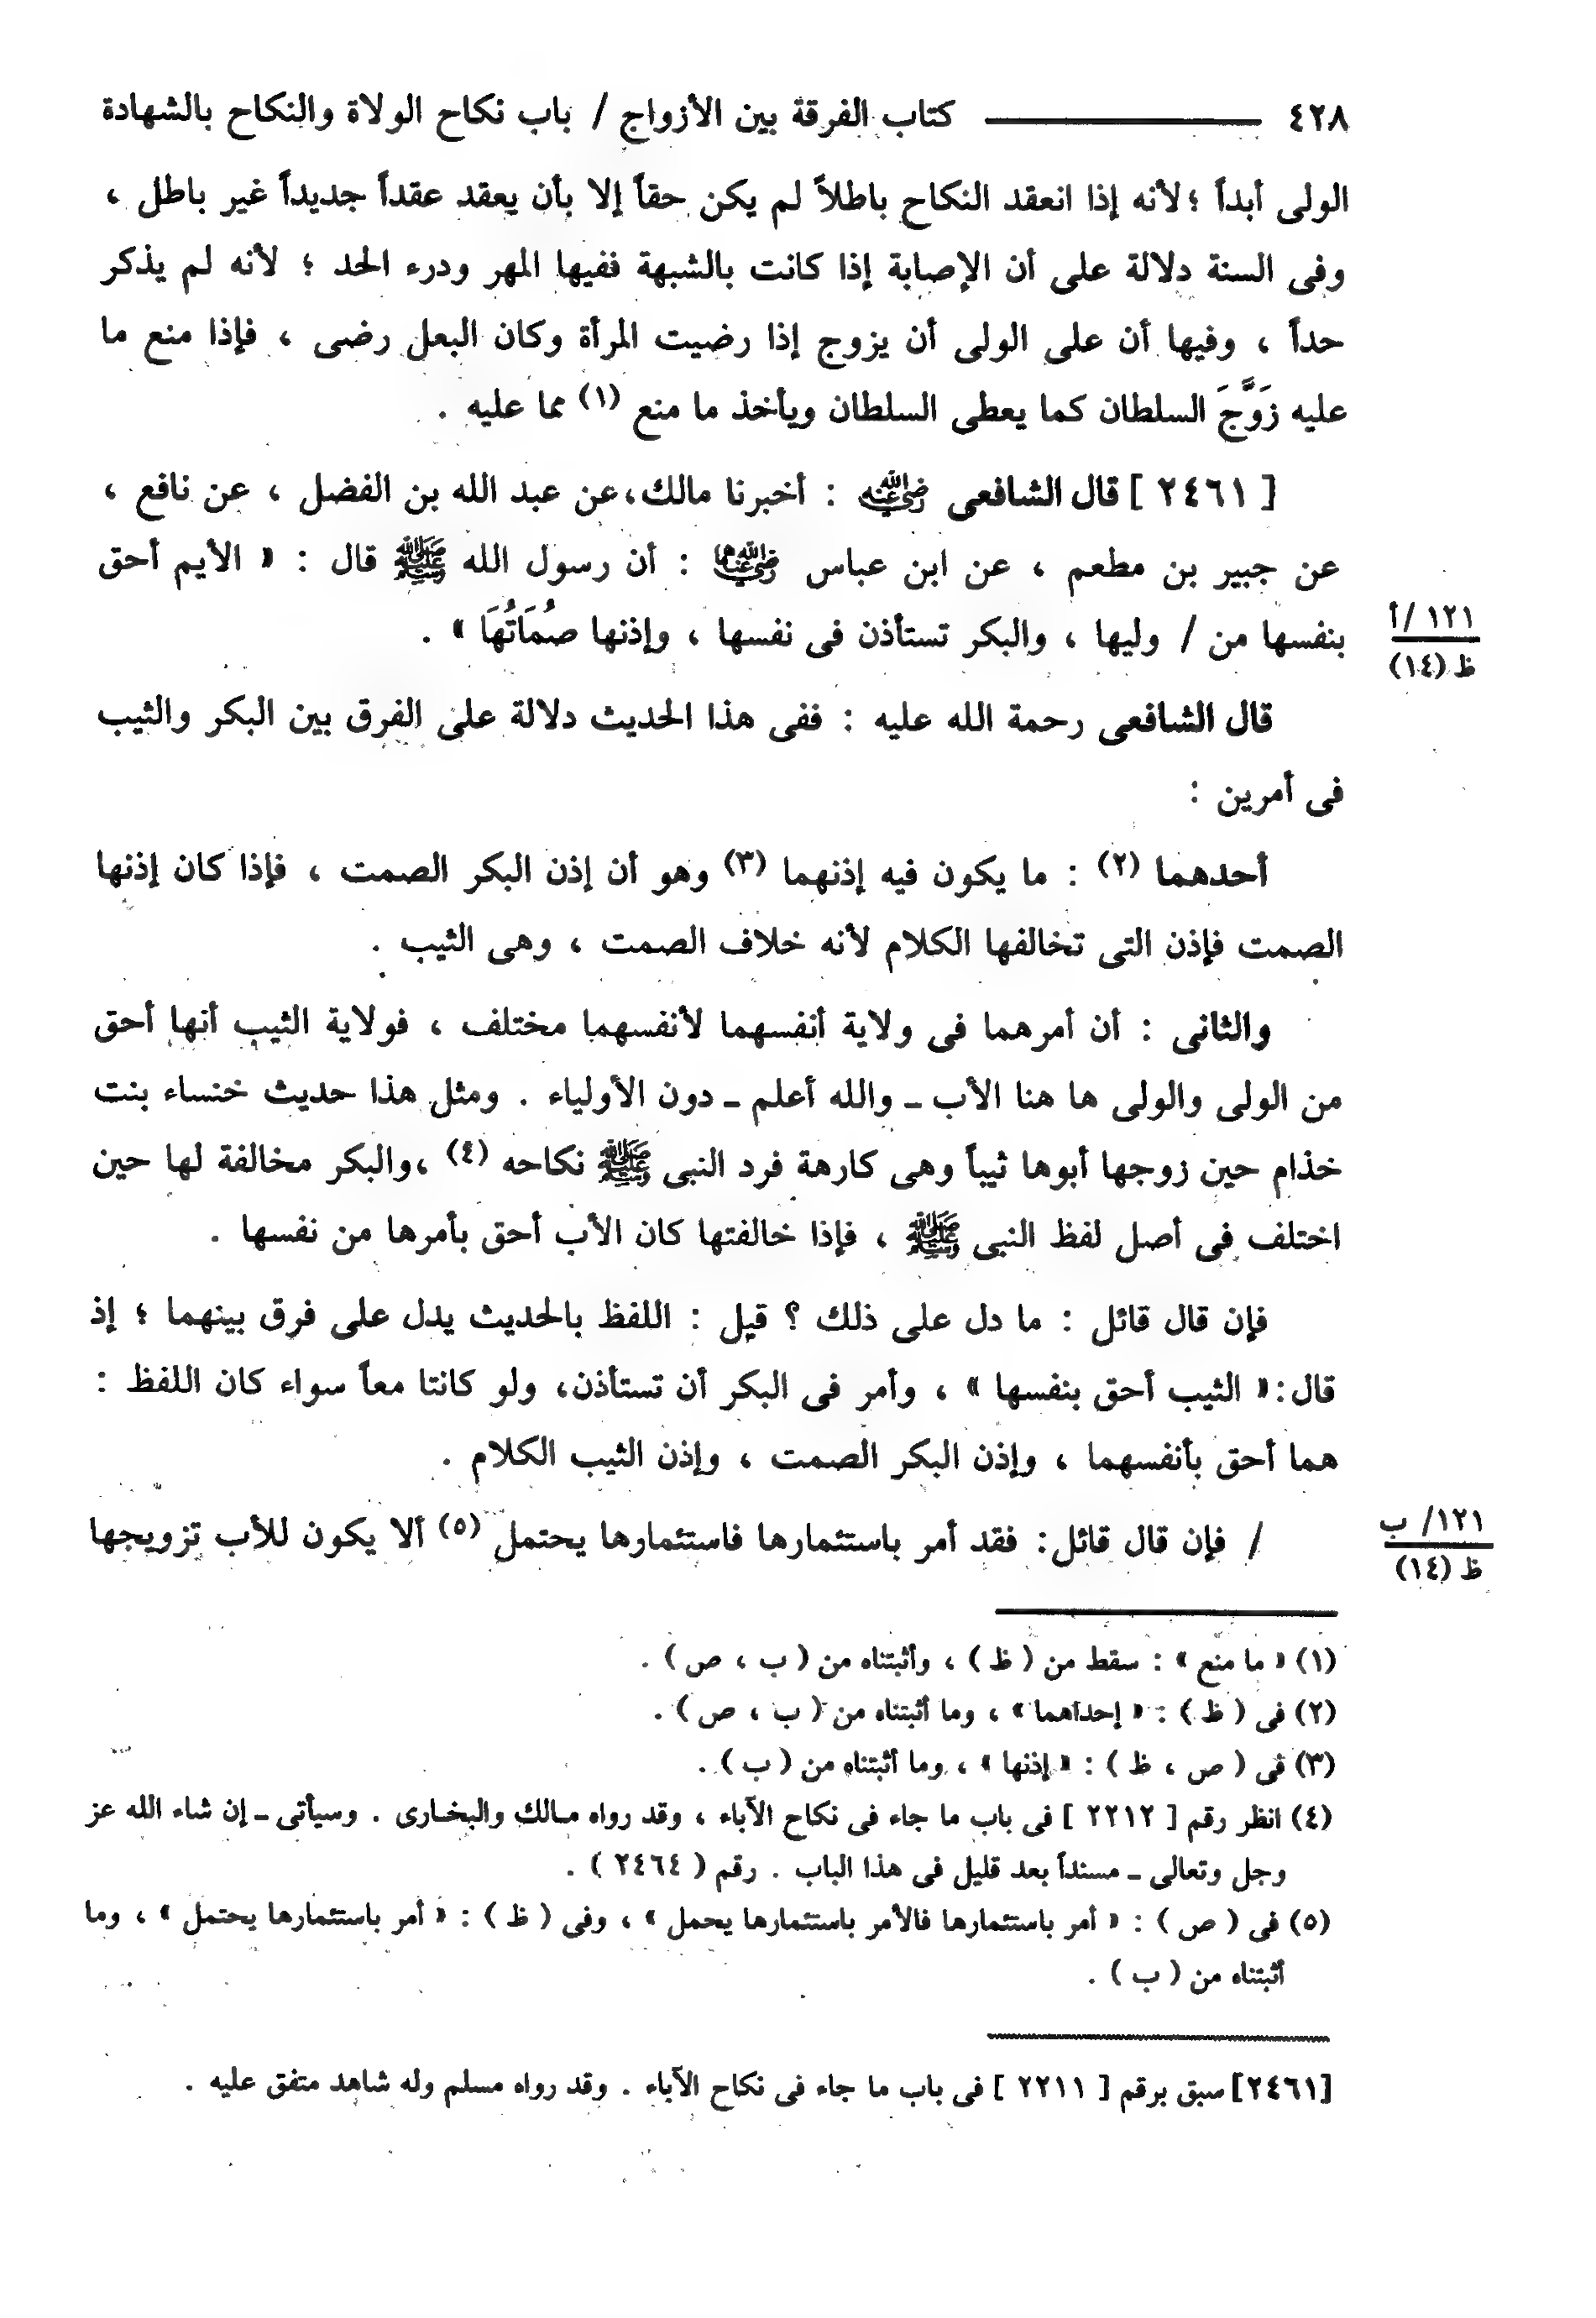 ٤٢٨ كتاب الفرقة بين الأزواج / باب نكاح الولاة والنكاح بالشهادة
الولى أبداً ؛ لأنه إذا انعقد النكاح باطلاً لم يكن حقاً إلا بأن يعقد عقداً جديداً غير باطل ،
وفى السنة دلالة على أن الإصابة إذا كانت بالشبهة ففيها المهر ودرء الحد ؛ لأنه لم يذكر
حداً ، وفيها أن على الولى أن يزوج إذا رضيت المرأة وكان البعل رضى ، فإذا منع ما
عليه زَوَّجَ السلطان كما يعطى السلطان ويأخذ ما منع (١) مما عليه .
[ ٢٤٦١ ] قال الشافعى رضي الله عنه : أخبرنا مالك، عن عبد الله بن الفضل ، عن نافع ،
عن جبير بن مطعم ، عن ابن عباس رضي الله عنهما : أن رسول الله ﷺ قال : « الأيم أحق
بنفسها من / وليها ، والبكر تستأذن فى نفسها ، وإذنها صُمَاتُهَا » .
١٢١ /أ
ظ (١٤)
قال الشافعى رحمة الله عليه : ففى هذا الحديث دلالة على الفرق بين البكر والثيب
فى أمرين :
أحدهما (٢) : ما يكون فيه إذنهما (٣) وهو أن إذن البكر الصمت ، فإذا كان إذنها
الصمت فإذن التى تخالفها الكلام لأنه خلاف الصمت ، وهى الثيب .
والثانى : أن أمرهما فى ولاية أنفسهما لأنفسهما مختلف ، فولاية الثيب أنها أحق
من الولى والولى ها هنا الأب ـ والله أعلم ـ دون الأولياء . ومثل هذا حديث خنساء بنت
خذام حين زوجها أبوها ثيباً وهى كارهة فرد النبى ﷺ نكاحه (٤) ،والبكر مخالفة لها حين
اختلف فى أصل لفظ النبى ﷺ ، فإذا خالفتها كان الأب أحق بأمرها من نفسها .
فإن قال قائل : ما دل على ذلك ؟ قيل : اللفظ بالحديث يدل على فرق بينهما ؛ إذ
قال: « الثيب أحق بنفسها » ، وأمر فى البكر أن تستأذن، ولو كانتا معاً سواء كان اللفظ :
هما أحق بأنفسهما ، وإذن البكر الصمت ، وإذن الثيب الكلام .
/ فإن قال قائل: فقد أمر باستئمارها فاستئمارها يحتمل (٥) ألا يكون للأب تزويجها
١٢١/ ب
ظ (١٤)
(١) « ما منع » : سقط من ( ظ ) ، وأثبتناه من ( ب ، ص ) .
(٢) فى ( ظ ) : « إحداهما » ، وما أثبتناه من ( ب ، ص ) .
(٣) فى ( ص ، ظ ) : « إذنها » ، وما أثبتناه من ( ب ) .
(٤) انظر رقم [ ٢٢١٢ ] فى باب ما جاء فى نكاح الآباء ، وقد رواه مالك والبخارى . وسيأتى ـ إن شاء الله عز
وجل وتعالى ـ مسنداً بعد قليل فى هذا الباب . رقم ( ٢٤٦٤ ) .
(٥) فى ( ص ) : « أمر باستئمارها فالأمر باستئمارها يحمل » ، وفى ( ظ ) : « أمر باستئمارها يحتمل » ، وما
أثبتناه من ( ب ) .
[٢٤٦١] سبق برقم [ ٢٢١١ ] فى باب ما جاء فى نكاح الآباء . وقد رواه مسلم وله شاهد متفق عليه .